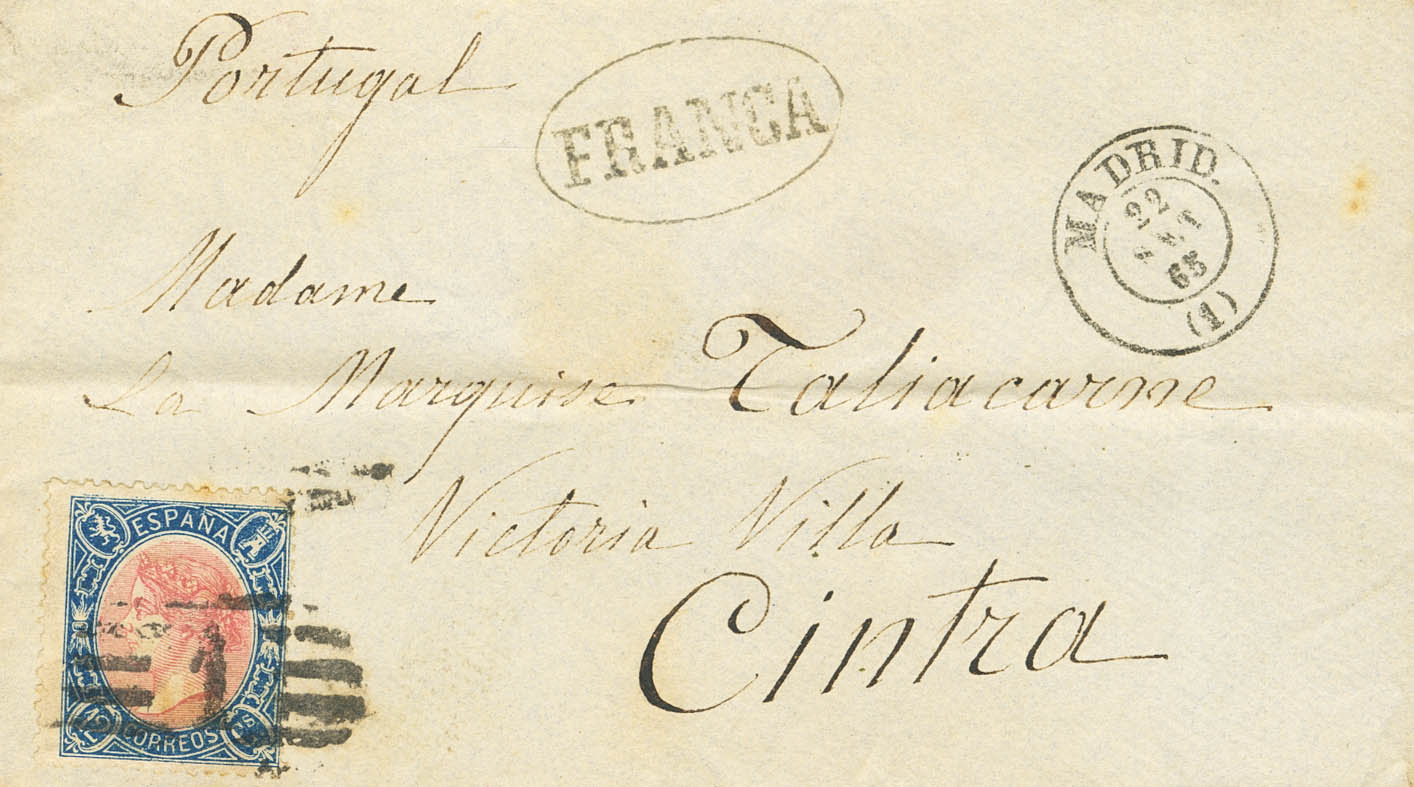 Portugal
FRANCA
MADRID.
22
SET
65
(1)
Madame
La Marquise Taliacarne
Victoria Villa
Cintra
ESPAÑA
12 CORREOS Cs